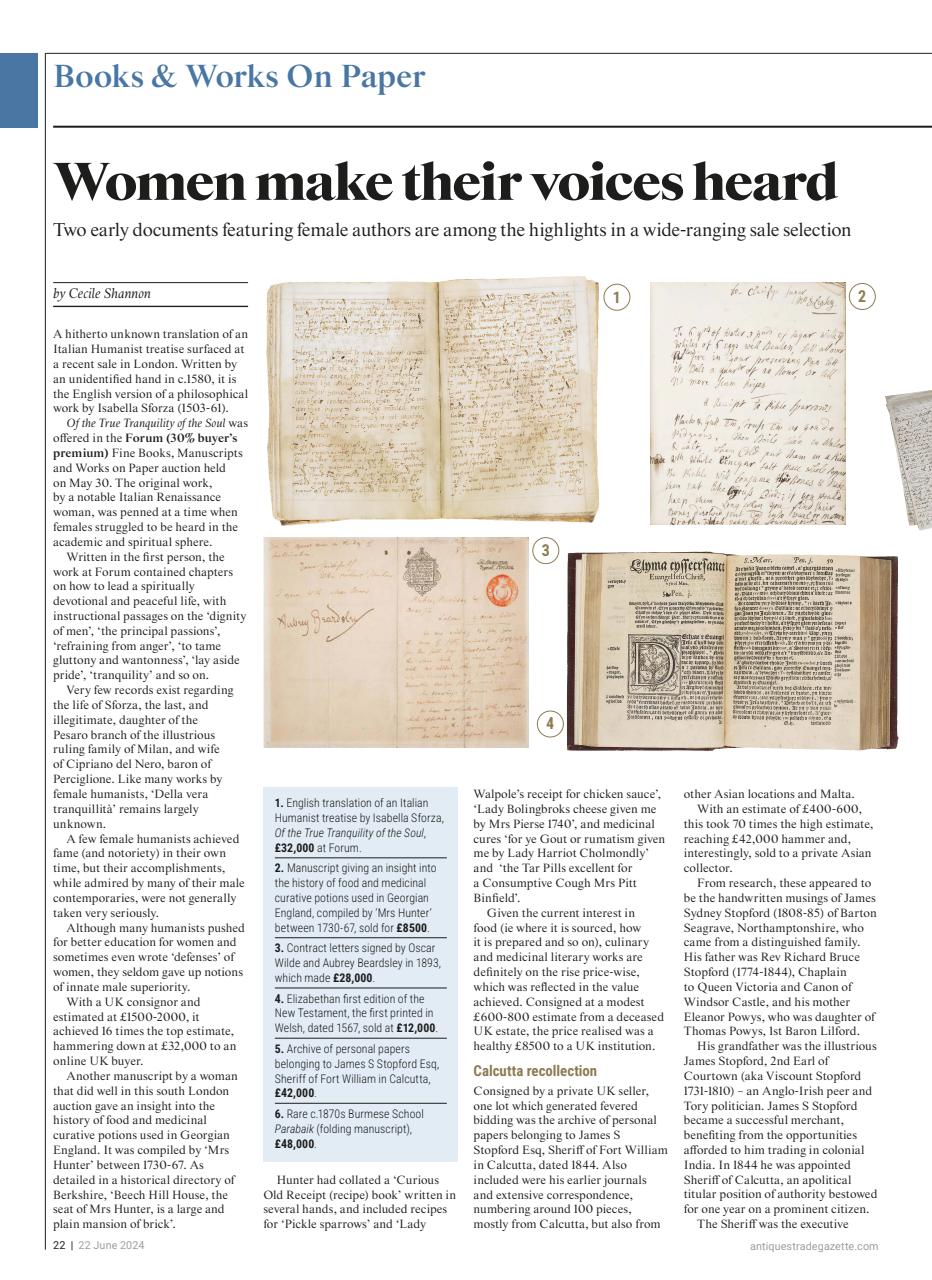 Books & Works On Paper
Women make their voices heard
Two early documents featuring female authors are among the highlights in a wide-ranging sale selection
by Cecile Shannon
A hitherto unknown translation of an
Italian Humanist treatise surfaced at
a recent sale in London. Written by
an unidentified hand in c.1580, it is
the English version of a philosophical
work by Isabella Sforza (1503-61).
Of the True Tranquility of the Soul was
offered in the Forum (30% buyer's
premium) Fine Books, Manuscripts
and Works on Paper auction held
on May 30. The original work,
by a notable Italian Renaissance
woman, was penned at a time when
females struggled to be heard in the
academic and spiritual sphere.
Written in the first person, the
work at Forum contained chapters
on how to lead a spiritually
devotional and peaceful life, with
instructional passages on the 'dignity
of men', 'the principal passions',
'refraining from anger', 'to tame
gluttony and wantonness', 'lay aside
pride', 'tranquility' and so on.
Very few records exist regarding
the life of Sforza, the last, and
illegitimate, daughter of the
Pesaro branch of the illustrious
ruling family of Milan, and wife
of Cipriano del Nero, baron of
Perciglione. Like many works by
female humanists, 'Della vera
tranquillità' remains largely
unknown.
A few female humanists achieved
fame (and notoriety) in their own
time, but their accomplishments,
while admired by many of their male
contemporaries, were not generally
taken very seriously.
Although many humanists pushed
for better education for women and
sometimes even wrote 'defenses' of
women, they seldom gave up notions
of innate male superiority.
With a UK consignor and
estimated at £1500-2000, it
achieved 16 times the top estimate,
hammering down at £32,000 to an
online UK buyer.
Another manuscript by a woman
that did well in this south London
auction gave an insight into the
history of food and medicinal
curative potions used in Georgian
England. It was compiled by 'Mrs
Hunter' between 1730-67. As
detailed in a historical directory of
Berkshire, 'Beech Hill House, the
seat of Mrs Hunter, is a large and
plain mansion of brick'.
1
2
3
4
Aubrey Beardsley
1. English translation of an Italian
Humanist treatise by Isabella Sforza,
Of the True Tranquility of the Soul,
£32,000 at Forum.
2. Manuscript giving an insight into
the history of food and medicinal
curative potions used in Georgian
England, compiled by 'Mrs Hunter'
between 1730-67, sold for £8500.
3. Contract letters signed by Oscar
Wilde and Aubrey Beardsley in 1893,
which made £28,000.
4. Elizabethan first edition of the
New Testament, the first printed in
Welsh, dated 1567, sold at £12,000.
5. Archive of personal papers
belonging to James S Stopford Esq,
Sheriff of Fort William in Calcutta,
£42,000.
6. Rare c.1870s Burmese School
Parabaik (folding manuscript),
£48,000.
Hunter had collated a 'Curious
Old Receipt (recipe) book' written in
several hands, and included recipes
for 'Pickle sparrows' and 'Lady
Walpole's receipt for chicken sauce',
'Lady Bolingbroks cheese given me
by Mrs Pierse 1740', and medicinal
cures 'for ye Gout or rumatism given
me by Lady Harriot Cholmondly'
and 'the Tar Pills excellent for
a Consumptive Cough Mrs Pitt
Binfield'.
Given the current interest in
food (ie where it is sourced, how
it is prepared and so on), culinary
and medicinal literary works are
definitely on the rise price-wise,
which was reflected in the value
achieved. Consigned at a modest
£600-800 estimate from a deceased
UK estate, the price realised was a
healthy £8500 to a UK institution.
Calcutta recollection
Consigned by a private UK seller,
one lot which generated fevered
bidding was the archive of personal
papers belonging to James S
Stopford Esq, Sheriff of Fort William
in Calcutta, dated 1844. Also
included were his earlier journals
and extensive correspondence,
numbering around 100 pieces,
mostly from Calcutta, but also from
other Asian locations and Malta.
With an estimate of £400-600,
this took 70 times the high estimate,
reaching £42,000 hammer and,
interestingly, sold to a private Asian
collector.
From research, these appeared to
be the handwritten musings of James
Sydney Stopford (1808-85) of Barton
Seagrave, Northamptonshire, who
came from a distinguished family.
His father was Rev Richard Bruce
Stopford (1774-1844), Chaplain
to Queen Victoria and Canon of
Windsor Castle, and his mother
Eleanor Powys, who was daughter of
Thomas Powys, 1st Baron Lilford.
His grandfather was the illustrious
James Stopford, 2nd Earl of
Courtown (aka Viscount Stopford
1731-1810) – an Anglo-Irish peer and
Tory politician. James S Stopford
became a successful merchant,
benefiting from the opportunities
afforded to him trading in colonial
India. In 1844 he was appointed
Sheriff of Calcutta, an apolitical
titular position of authority bestowed
for one year on a prominent citizen.
The Sheriff was the executive
22 | 22 June 2024
antiquestradegazette.com